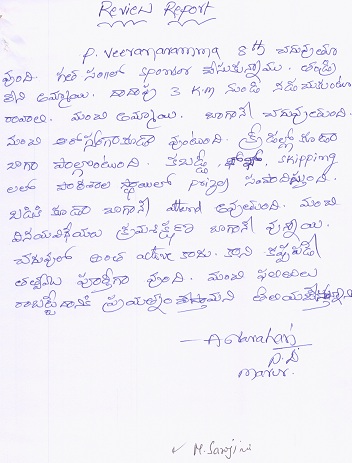 Review Report
P. Veeranaramma 8th చదువుతూ
వుంది. గత సంగా sponsor చేసుకున్నాము. తండ్రి
లేని అమ్మాయి. దాదాపు 3 K.m నుండి నడుచుకుంటూ
రావాలి. మంచి అమ్మాయి. బాగానే చదువుతుంది.
మంచి కూడా వుంటుంది. క్రీడల్లో కూడా
బాగా పాల్గొంటుంది. కబడ్డీ, skipping
లలో పాఠశాల స్థాయిలో prizes సంపాదిస్తుంది.
బడికి కూడా బాగానే attend అవుతుంది. మంచి
వినయవిధేయలు క్రమశిక్షణ బాగానే వున్నాయి.
చదువులో అంత active కాదు. కాని కష్టపడే
తత్వము పూర్తిగా వుంది. మంచి ఫలితాలు
రాబట్టేదానికి ప్రయత్నం చేస్తామని తెలియచేస్తున్నాను
P.D
✓ M. Sarojini